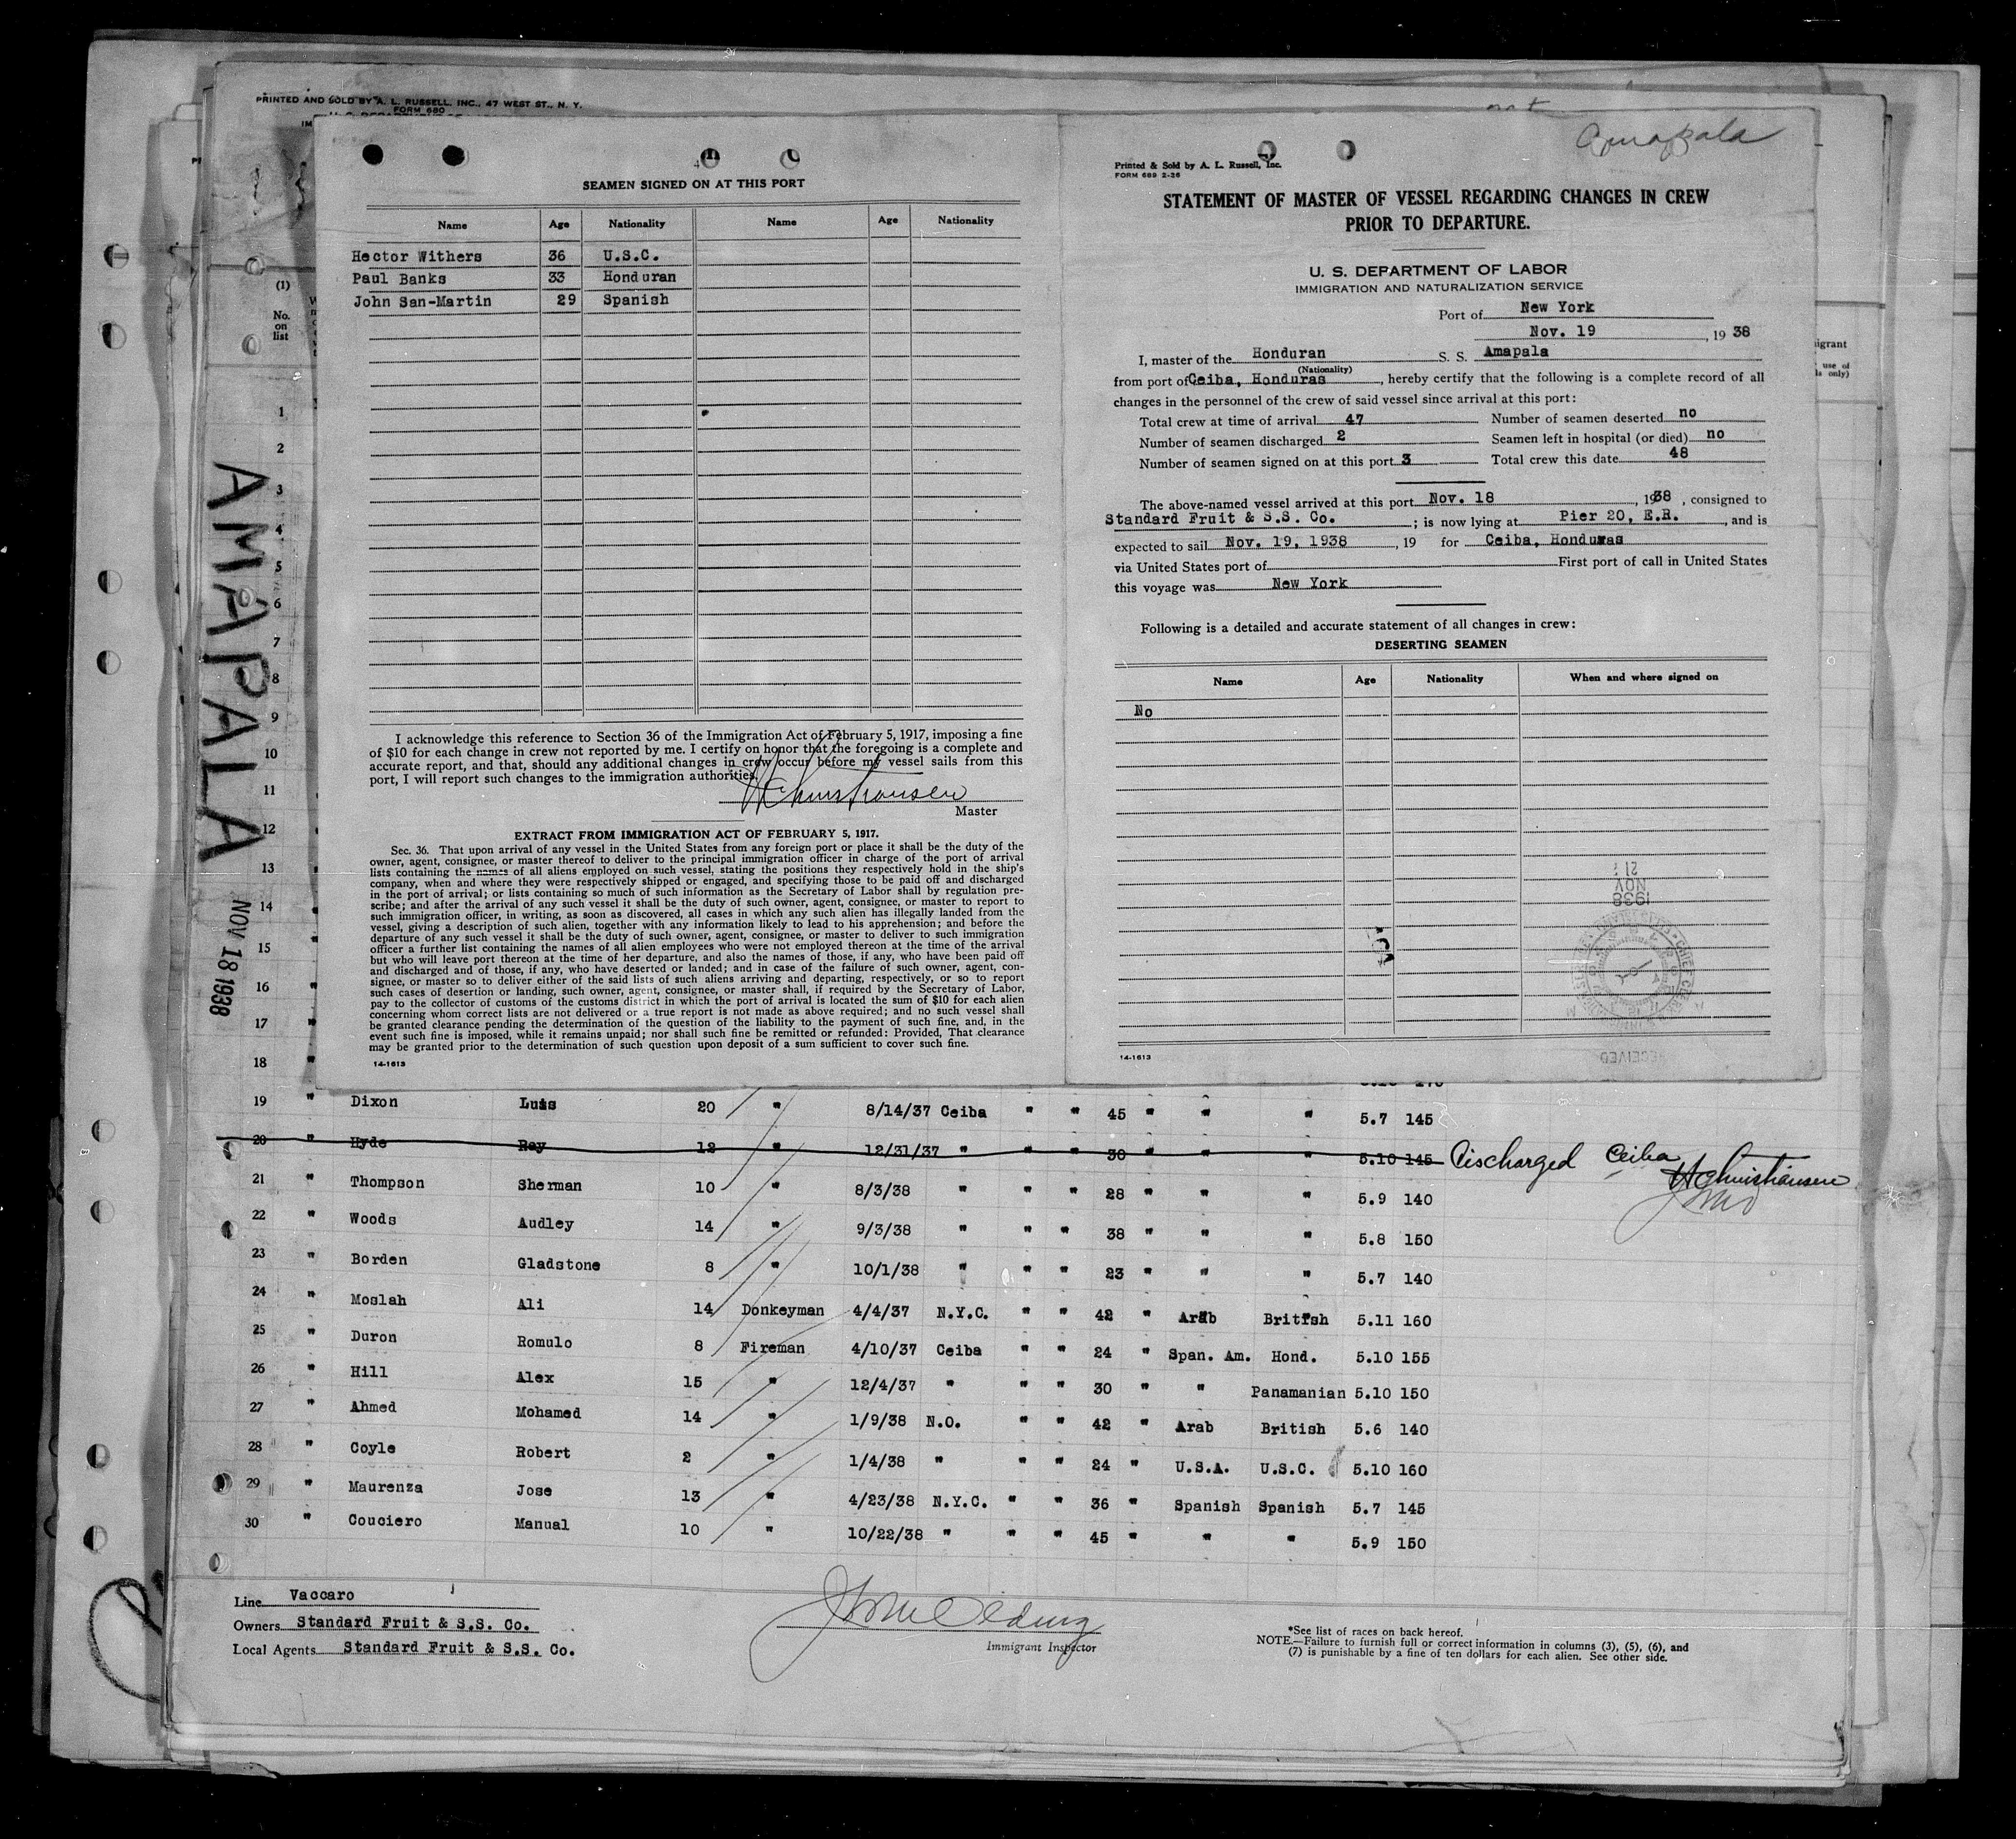 PRINTED AND SOLD BY A. L. RUSSELL, INC., 47 WEST ST., N. Y.
FORM 680
(1)
No.
on
list
AMAPALA
NOV 18 1938
1
2
3
4
5
6
7
8
9
10
11
12
13
14
15
16
17
18
SEAMEN SIGNED ON AT THIS PORT
Name Age Nationality Name Age Nationality
Hector Withers 36 U.S.C.
Paul Banks 33 Honduran
John San-Martin 29 Spanish
I acknowledge this reference to Section 36 of the Immigration Act of February 5, 1917, imposing a fine
of $10 for each change in crew not reported by me. I certify on honor that the foregoing is a complete and
accurate report, and that, should any additional changes in crew occur before my vessel sails from this
port, I will report such changes to the immigration authorities.
HChristiansen
Master
EXTRACT FROM IMMIGRATION ACT OF FEBRUARY 5, 1917.
Sec. 36. That upon arrival of any vessel in the United States from any foreign port or place it shall be the duty of the
owner, agent, consignee, or master thereof to deliver to the principal immigration officer in charge of the port of arrival
lists containing the names of all aliens employed on such vessel, stating the positions they respectively hold in the ship's
company, when and where they were respectively shipped or engaged, and specifying those to be paid off and discharged
in the port of arrival; or lists containing so much of such information as the Secretary of Labor shall by regulation pre-
scribe; and after the arrival of any such vessel it shall be the duty of such owner, agent, consignee, or master to report to
such immigration officer, in writing, as soon as discovered, all cases in which any such alien has illegally landed from the
vessel, giving a description of such alien, together with any information likely to lead to his apprehension; and before the
departure of any such vessel it shall be the duty of such owner, agent, consignee, or master to deliver to such immigration
officer a further list containing the names of all alien employees who were not employed thereon at the time of the arrival
but who will leave port thereon at the time of her departure, and also the names of those, if any, who have been paid off
and discharged and of those, if any, who have deserted or landed; and in case of the failure of such owner, agent, con-
signee, or master so to deliver either of the said lists of such aliens arriving and departing, respectively, or so to report
such cases of desertion or landing, such owner, agent, consignee, or master shall, if required by the Secretary of Labor,
pay to the collector of customs of the customs district in which the port of arrival is located the sum of $10 for each alien
concerning whom correct lists are not delivered or a true report is not made as above required; and no such vessel shall
be granted clearance pending the determination of the question of the liability to the payment of such fine, and, in the
event such fine is imposed, while it remains unpaid; nor shall such fine be remitted or refunded: Provided, That clearance
may be granted prior to the determination of such question upon deposit of a sum sufficient to cover such fine.
14-1613
Amapala
Printed & Sold by A. L. Russell, Inc.
FORM 689 2-26
STATEMENT OF MASTER OF VESSEL REGARDING CHANGES IN CREW
PRIOR TO DEPARTURE.
U. S. DEPARTMENT OF LABOR
IMMIGRATION AND NATURALIZATION SERVICE
Port of New York
Nov. 19, 1938
I, master of the Honduran S. S. Amapala
(Nationality)
from port of Ceiba, Honduras, hereby certify that the following is a complete record of all
changes in the personnel of the crew of said vessel since arrival at this port:
Total crew at time of arrival 47 Number of seamen deserted no
Number of seamen discharged 2 Seamen left in hospital (or died) no
Number of seamen signed on at this port 3 Total crew this date 48
The above-named vessel arrived at this port Nov. 18, 1938, consigned to
Standard Fruit & S.S. Co.; is now lying at Pier 20, E.R., and is
expected to sail Nov. 19, 1938, 19 for Ceiba, Honduras
via United States port of First port of call in United States
this voyage was New York
Following is a detailed and accurate statement of all changes in crew:
DESERTING SEAMEN
Name Age Nationality When and where signed on
No
1938
NOV
21
RECEIVED
14-1613
19 " Dixon Luis 20 " 8/14/37 Ceiba " " 45 " " " 5.7 145
20 " Hyde Ray 12 " 12/31/37 " " " 30 " " 5.10 145 Discharged Ceiba
HChristiansen
21 " Thompson Sherman 10 " 8/3/38 " " " 28 " " " 5.9 140
22 " Woods Audley 14 " 9/3/38 " " " 38 " " " 5.8 150
23 " Borden Gladstone 8 " 10/1/38 " " " 23 " " " 5.7 140
24 " Moslah Ali 14 Donkeyman 4/4/37 N.Y.C. " " 42 " Arab British 5.11 160
25 " Duron Romulo 8 Fireman 4/10/37 Ceiba " " 24 " Span. Am. Hond. 5.10 155
26 " Hill Alex 15 " 12/4/37 " " " 30 " " Panamanian 5.10 150
27 " Ahmed Mohamed 14 " 1/9/38 N.O. " " 42 " Arab British 5.6 140
28 " Coyle Robert 2 " 1/4/38 " " " 24 " U.S.A. U.S.C. 5.10 160
29 " Maurenza Jose 13 " 4/23/38 N.Y.C. " " 36 " Spanish Spanish 5.7 145
30 " Couciero Manual 10 " 10/22/38 " " " 45 " " " 5.9 150
Line Vaccaro
Owners Standard Fruit & S.S. Co.
Local Agents Standard Fruit & S.S. Co.
Immigrant Inspector
*See list of races on back hereof.
NOTE.—Failure to furnish full or correct information in columns (3), (5), (6), and
(7) is punishable by a fine of ten dollars for each alien. See other side.